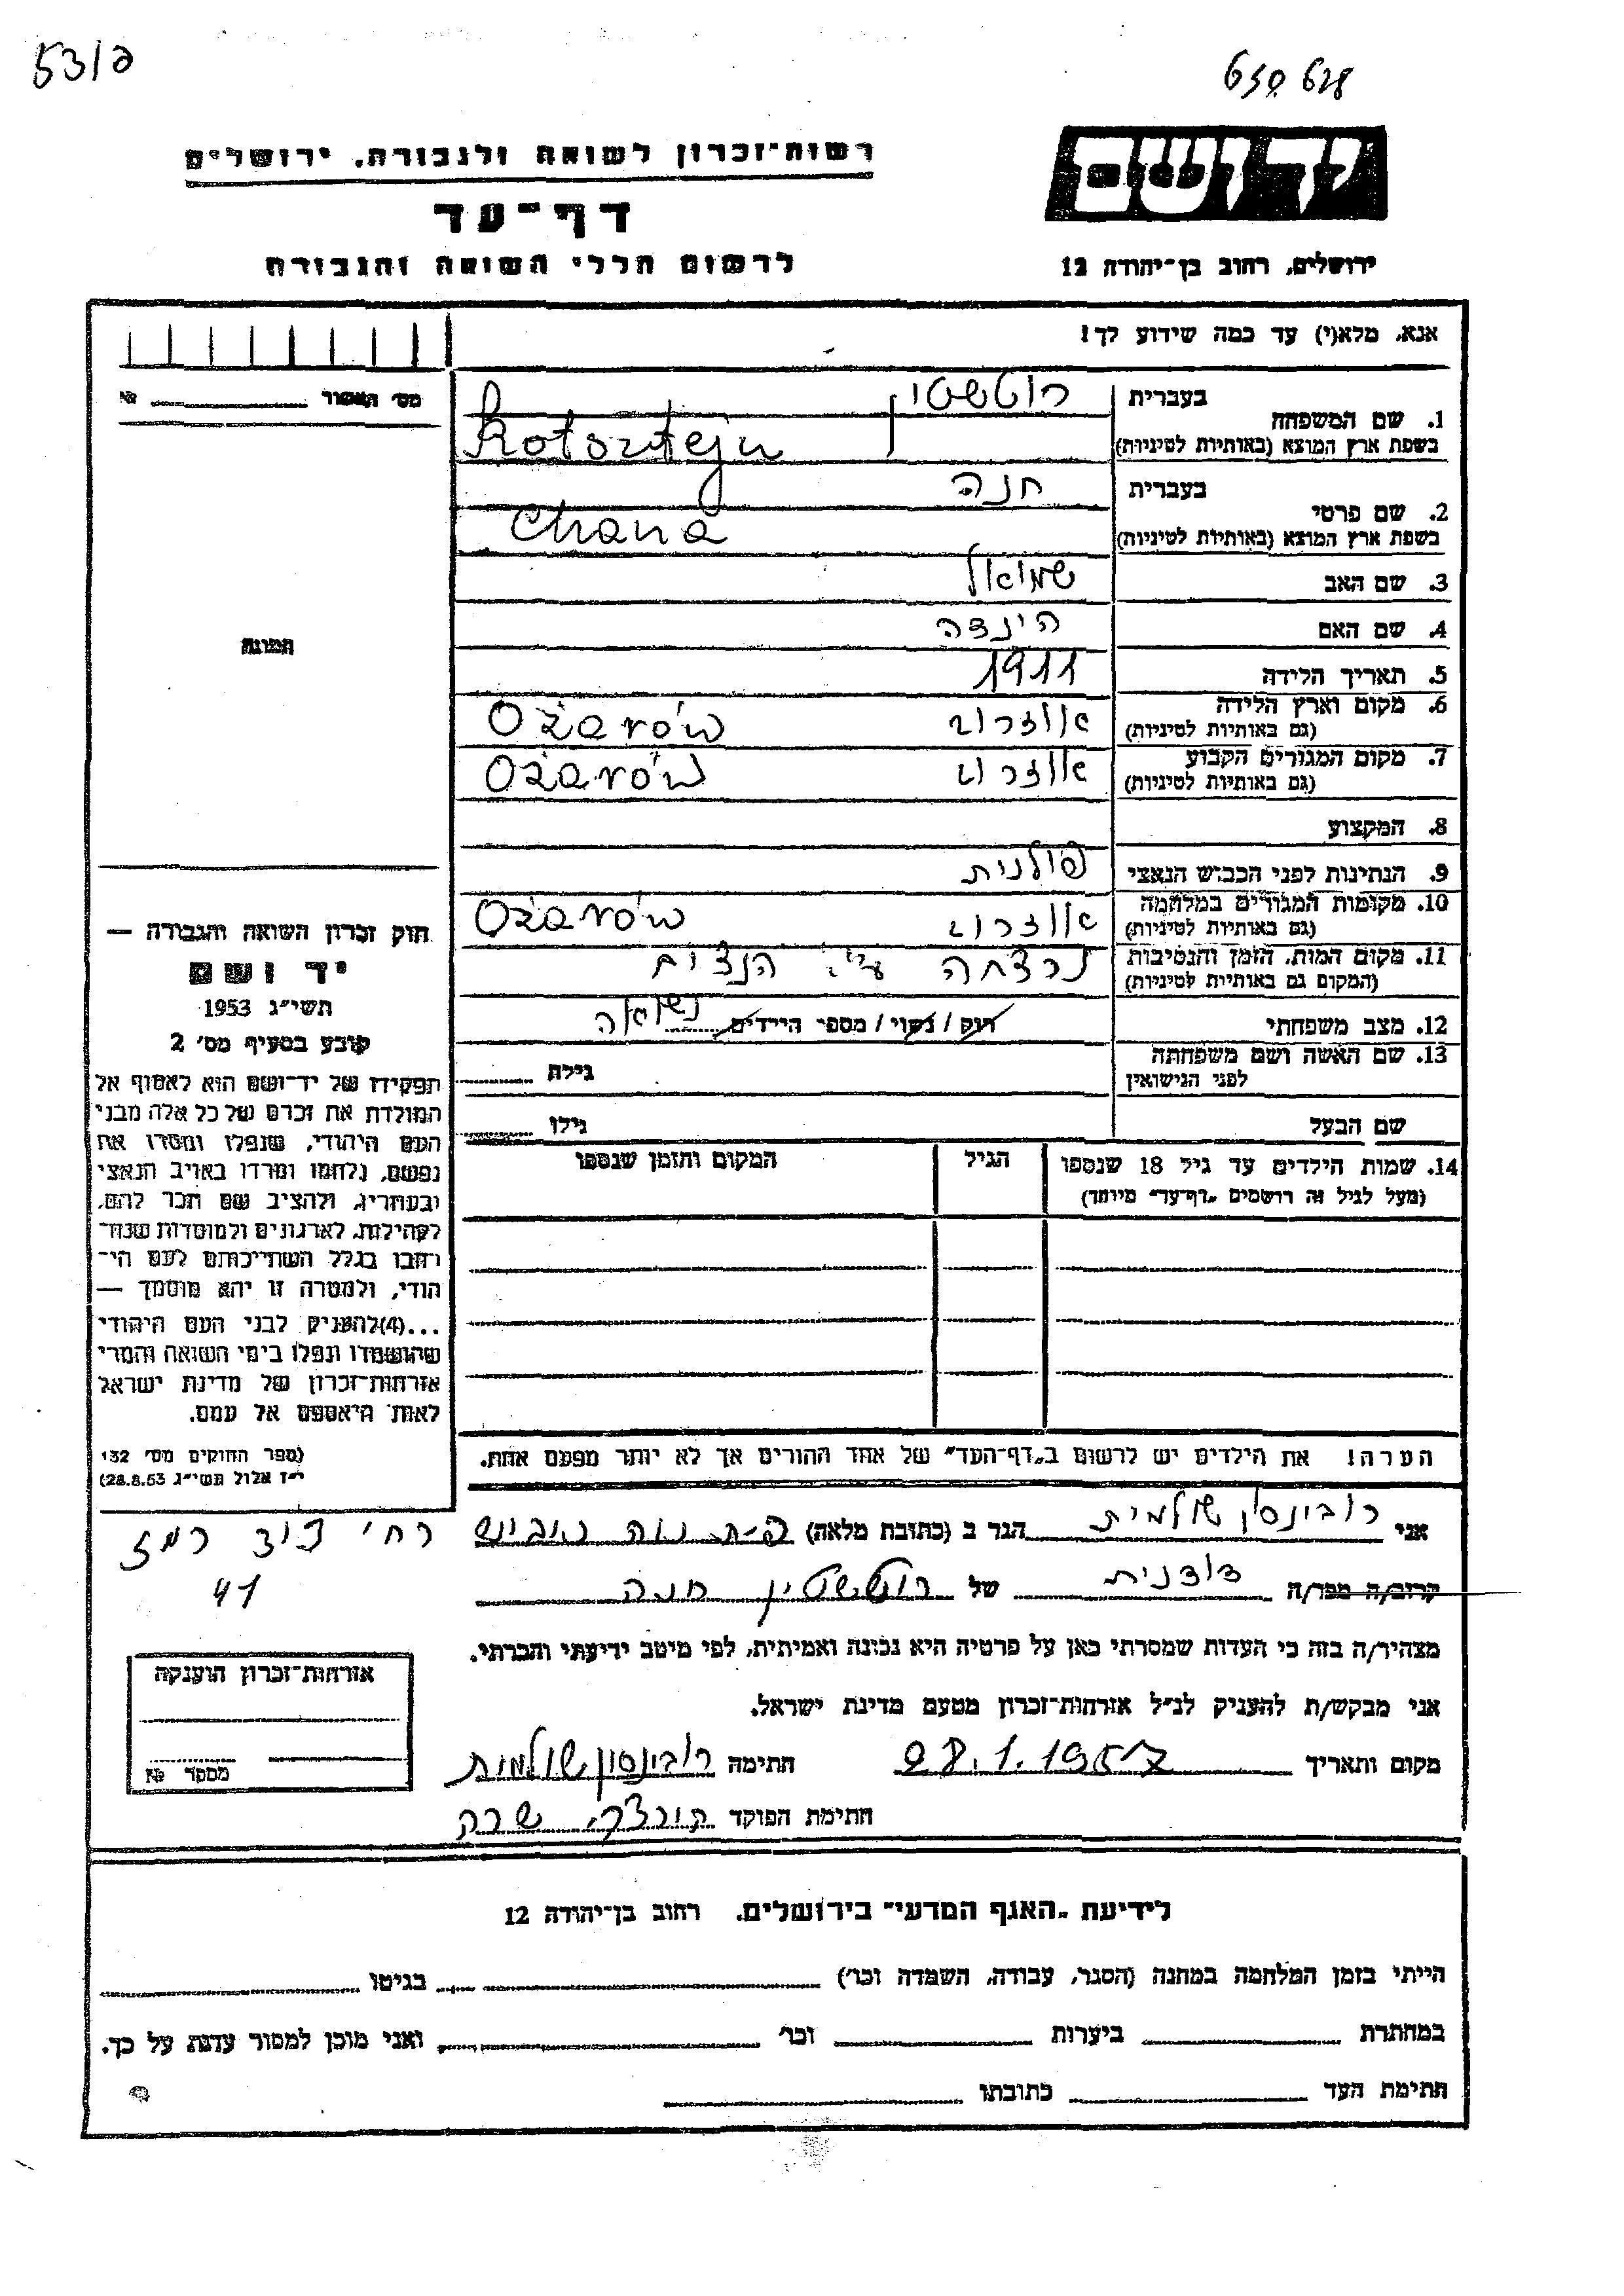 53/ 630 628
יד ושם
רשות-זכרון לשואה ולגבורה, ירושלים
דף-עד
ירושלים, רחוב בן-יהודה 12
לרשום חללי השואה והגבורה
אנא, מלא(י) עד כמה שידוע לך!
מס' האשור № 
1. שם המשפחה
בעברית רוטשטין
בשפת ארץ המוצא (באותיות לטיניות) Rotsztejn
2. שם פרטי
בעברית חנה
בשפת ארץ המוצא (באותיות לטיניות) Chana
3. שם האב שמואל
4. שם האם הינדה
5. תאריך הלידה 1911
6. מקום וארץ הלידה
(גם באותיות לטיניות) אוזרוב Ożarów
7. מקום המגורים הקבוע
(גם באותיות לטיניות) אוזרוב Ożarów
8. המקצוע
9. הנתינות לפני הכבוש הנאצי פולנית
10. מקומות המגורים במלחמה
(גם באותיות לטיניות) אוזרוב Ożarów
11. מקום המות, הזמן והנסיבות
(המקום גם באותיות לטיניות) נרצחה ע"י הנצים
12. מצב משפחתי רוק / נשוי / מספר הילדים נשואה
13. שם האשה ושם משפחתה
לפני הנישואין גילה
שם הבעל גילו
14. שמות הילדים עד גיל 18 שנספו הגיל המקום והזמן שנספו
(מעל לגיל זה רושמים "דף-עד" מיוחד)
הערה! את הילדים יש לרשום ב"דף-העד" של אחד ההורים אך לא יותר מפעם אחת.
תמונה
חוק זכרון השואה והגבורה —
יד ושם
תשי"ג 1953
קובע בסעיף מס' 2
תפקידו של יד-ושם הוא לאסוף אל
המולדת את זכרם של כל אלה מבני
העם היהודי, שנפלו ומסרו את
נפשם, נלחמו ומרדו באויב הנאצי
ובעוזריו, ולהציב שם וזכר להם,
לקהילות, לארגונים ולמוסדות שנח-
רבו בגלל השתייכותם לעם הי-
הודי, ולמטרה זו יהא מוסמך —
...(4)להעניק לבני העם היהודי
שהושמדו ונפלו בימי השואה והמרי
אזרחות-זכרון של מדינת ישראל
לאות היאספם אל עמם.
(ספר החוקים מס' 132
י"ז אלול תשי"ג 28.8.53)
אני רובינסון שולמית הגר ב (כתובת מלאה) נוה
רח' דוד רמז
41
קרוב/ה מכר/ה דודנית של רוטשטין חנה
מצהיר/ה בזה כי העדות שמסרתי כאן על פרטיה היא נכונה ואמיתית, לפי מיטב ידיעתי והכרתי.
אני מבקש/ת להעניק לנ"ל אזרחות-זכרון מטעם מדינת ישראל.
מקום ותאריך 28.1.1957 חתימה רובינסון שולמית
חתימת הפוקד שרה
אזרחות-זכרון הוענקה
מספר №
לידיעת "האגף המדעי" בירושלים, רחוב בן-יהודה 12
הייתי בזמן המלחמה במחנה (הסגר, עבודה, השמדה וכו') בגיטו
במחתרת ביערות וכו' ואני מוכן למסור עדות על כך.
חתימת העד כתובתו